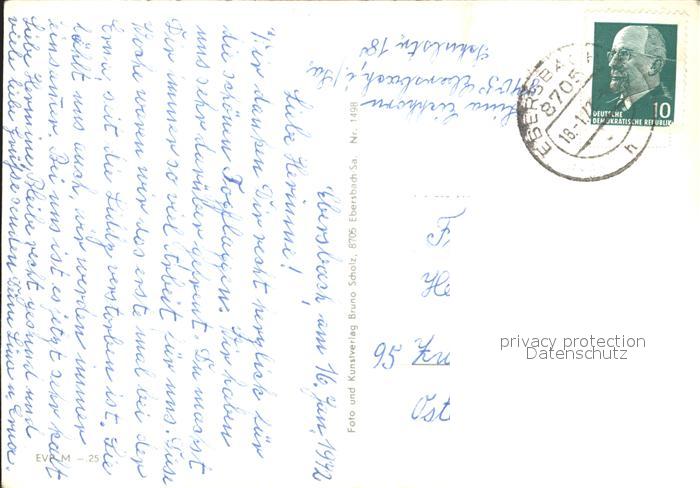 Ebersbach, am 16. Jan. 1972
Liebe Hermine!
Wir danken Dir recht herzlich für
die schönen Topflappen. Wir haben
uns sehr darüber gefreut. Du machst
Dir immer so viel Arbeit für uns. Diese
Woche waren wir das erste mal bei der
Erna, seit die Liddy verstorben ist. Sie
läßt uns auch, wir werden immer
einsamer. Bei uns ist es jetzt sehr kalt
Liebe Hermine, Bleibe recht gesund und
viele liebe Grüße senden Dir Lina u. Erna.
EVP M -.25
Foto und Kunstverlag Bruno Scholz, 8705 Ebersbach Sa. Nr. 1498
Lina
8705 Ebersbach i/Sa.
Schulstr. 18
EBERSBACH
8705
18.-1.72
h
10
DEUTSCHE
DEMOKRATISCHE REPUBLIK
F
He
95 Zw
Ost
privacy protection
Datenschutz